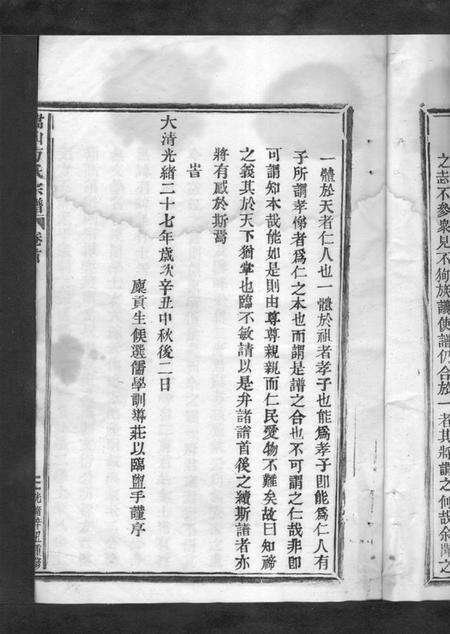 之志不參衆見不狥族議使譜仍合於一者其將謂之何哉余聞之
一體於天者仁人也一體於祖者孝子也能爲孝子卽能爲仁人有
子所謂孝悌者爲仁之本也而謂是譜之合也不可謂之仁哉非卽
可謂知本哉能如是則由尊尊親親而仁民愛物不難矣故曰知禘
之義其於天下猶掌也臨不敏請以是弁諸譜首後之續斯譜者亦
將有感於斯焉
旹
大清光緒二十七年歲次辛丑中秋後二日
廩貢生候選儒學訓導莊以臨盥手謹序
方氏宗譜 卷首
光緒辛丑重修